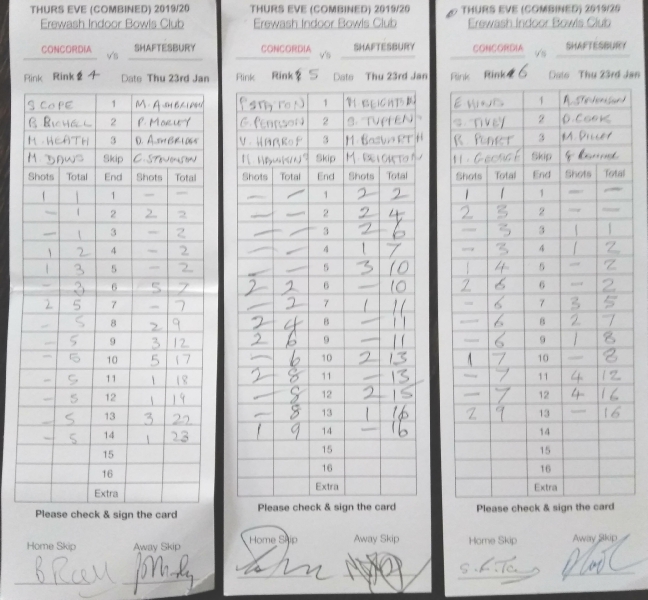 THURS EVE (COMBINED) 2019/20
Erewash Indoor Bowls Club
CONCORDIA v's SHAFTESBURY
Rink Rink 4 Date Thu 23rd Jan
S COPE 1 M. AMBRIDGE
B BICHELL 2 P. MORLEY
M. HEATH 3 D. AMBRIDGE
M DAWS Skip C. STEVENSON
Shots Total End Shots Total
1 1 1 — —
— 1 2 2 2
— 1 3 — 2
1 2 4 — 2
1 3 5 — 2
— 3 6 5 7
2 5 7 — 7
— 5 8 2 9
— 5 9 3 12
— 5 10 5 17
— 5 11 1 18
— 5 12 1 19
— 5 13 3 22
— 5 14 1 23
15
16
Extra
Please check & sign the card
Home Skip Away Skip
THURS EVE (COMBINED) 2019/20
Erewash Indoor Bowls Club
CONCORDIA v's SHAFTESBURY
Rink Rink 5 Date Thu 23rd Jan
1 M. BEIGHTON
G PEARSON 2
V. HARROP 3 M. BOSWORTH
M. HAWKINS Skip M. BEIGHTON
Shots Total End Shots Total
— — 1 2 2
— — 2 2 4
— — 3 2 6
— — 4 1 7
— — 5 3 10
2 2 6 — 10
— 2 7 1 11
2 4 8 — 11
2 6 9 — 11
— 6 10 2 13
2 8 11 — 13
— 8 12 2 15
— 8 13 1 16
1 9 14 — 16
15
16
Extra
Please check & sign the card
Home Skip Away Skip
THURS EVE (COMBINED) 2019/20
Erewash Indoor Bowls Club
CONCORDIA v's SHAFTESBURY
Rink Rink 6 Date Thu 23rd Jan
E HIND 1 A. Stevenson
S. TIVEY 2 D. COOK
R PLART 3 M. DILLEY
M. GEORGE Skip
Shots Total End Shots Total
1 1 1 — —
2 3 2 — —
— 3 3 1 1
— 3 4 1 2
1 4 5 — 2
2 6 6 — 2
— 6 7 3 5
— 6 8 2 7
— 6 9 1 8
1 7 10 — 8
— 7 11 4 12
— 7 12 4 16
2 9 13 — 16
14
15
16
Extra
Please check & sign the card
Home Skip Away Skip